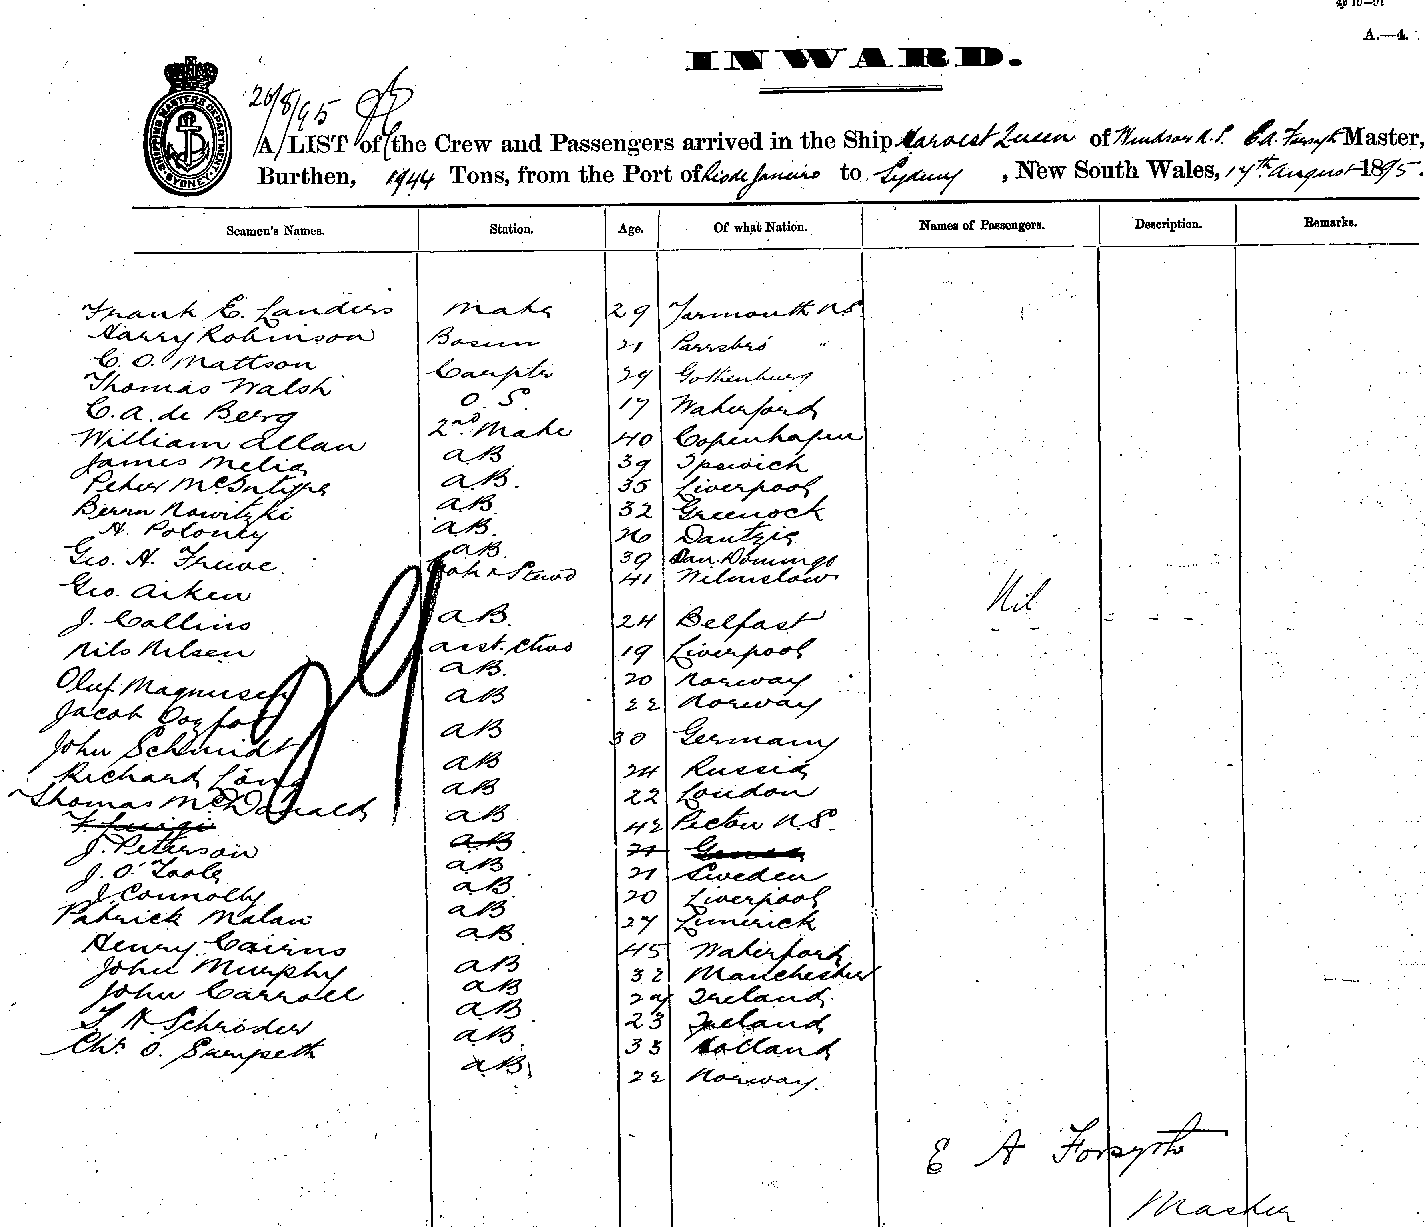 A.—4.
INWARD.
26/8/95
A LIST of the Crew and Passengers arrived in the Ship Harvest Queen of Windsor N.S. E A Forsyth Master,
Burthen, 1944 Tons, from the Port of Rio de Janeiro to Sydney, New South Wales, 17th August 1895.
SHIPPING MASTERS DEPARTMENT SYDNEY
Seamen's Names. Station. Age. Of what Nation. Names of Passengers. Description. Remarks.
Frank E. Landers Mate 29 Yarmouth N.S.
Harry Robinson Bosun 21 Parrsbro "
C. O. Mattson Carptr 29 Gothenburg
Thomas Walsh O. S. 17 Waterford
C. A. de Berg 2nd Mate 40 Copenhagen
William Allan AB 39 Ipswich
James Melia A.B. 35 Liverpool
Peter McIntyre AB 32 Greenock
Bernn Nowitzki AB. 26 Dantzig
A. Poloney AB. 39 San. Domingo
Geo. H. Truwe Cook & Stewd 41 Wilmslow
Geo. Aiken AB. 24 Belfast
J. Collins asst. Stwd 19 Liverpool
Nils Nilsen AB. 20 Norway
Oluf Magnusen AB 22 Norway
Jacob AB 30 Germany
John Schmidt AB 24 Russia
Richard Long AB 22 London
Thomas McDonald AB 42 Pictou N.S.
F Luigi AB 21 Genoa
J. Peterson AB 21 Sweden
J. O'Toole AB 20 Liverpool
J. Connolly AB 27 Limerick
Patrick Malan AB 45 Waterford
Henry Cairns AB 32 Manchester
John Murphy AB 29 Ireland
John Carroll AB 23 Ireland
Schroder AB. 33 Holland
Chr. O. AB. 22 Norway.
Nil
E A Forsyth
Master